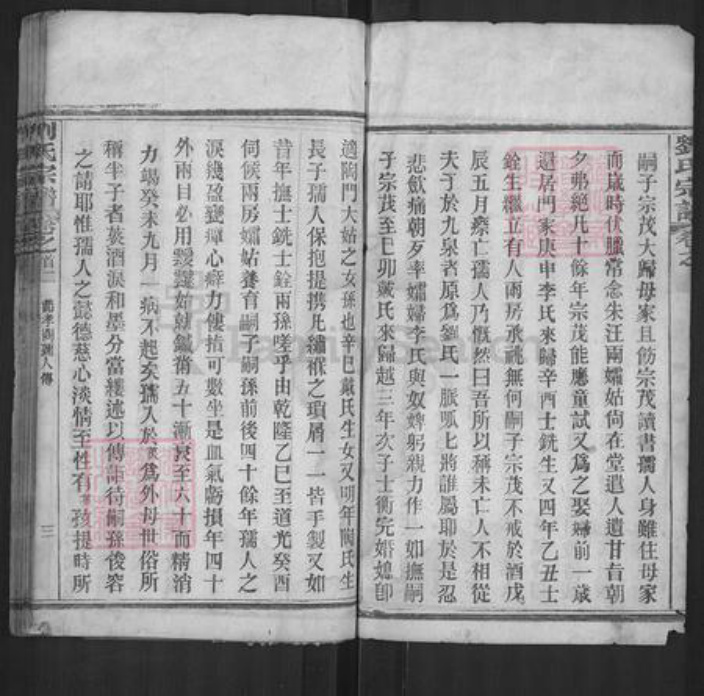 劉氏宗譜 卷之
嗣子宗茂大歸母家且飭宗茂讀書孺人身雖住母家
而歲時伏臘常念朱汪兩孀姑尙在堂遣人遺甘旨朝
夕弗絕凡十餘年宗茂能應童試又爲之娶婦前一歲
還居門家庚申李氏來歸辛酉士銑生又四年乙丑士
銓生繼立有人兩房承祧無何嗣子宗茂不戒於酒戊
辰五月瘵亡孺人乃慨然曰吾所以稱未亡人不相從
夫于於九泉者原爲劉氏一脈呱七將誰屬聊於是忍
悲歛痛朝夕率孀婦李氏與奴婢躬親力作一如撫嗣
子宗茂至己卯戴氏來歸越三年次子士衡完婚媳卽
適陶門大姑之女孫也辛巳戴氏生女又明年陶氏生
長子孺人保抱提携凡繈褓之瑣屑一一皆手製又如
昔年撫士銑士銓兩孫嗟乎由乾隆乙巳至道光癸酉
伺候兩房孀姑養育嗣子嗣孫前後四十餘年孺人之
淚幾盈甕癉心癖力僂指可數坐是血氣虧損年四十
外兩目必用靉靆始就鍼黹五十漸衰至六十而精消
力竭癸未九月一病不起矣孺人於 爲外母世俗所
稱半子者蓺酒淚和墨分當縷述以傳詎待嗣孫俊容
之請耶惟孺人之懿德慈心淡情至性有 孩提時所
劉氏宗譜 卷之首二 節孝劉孺人傳 三
Family Search